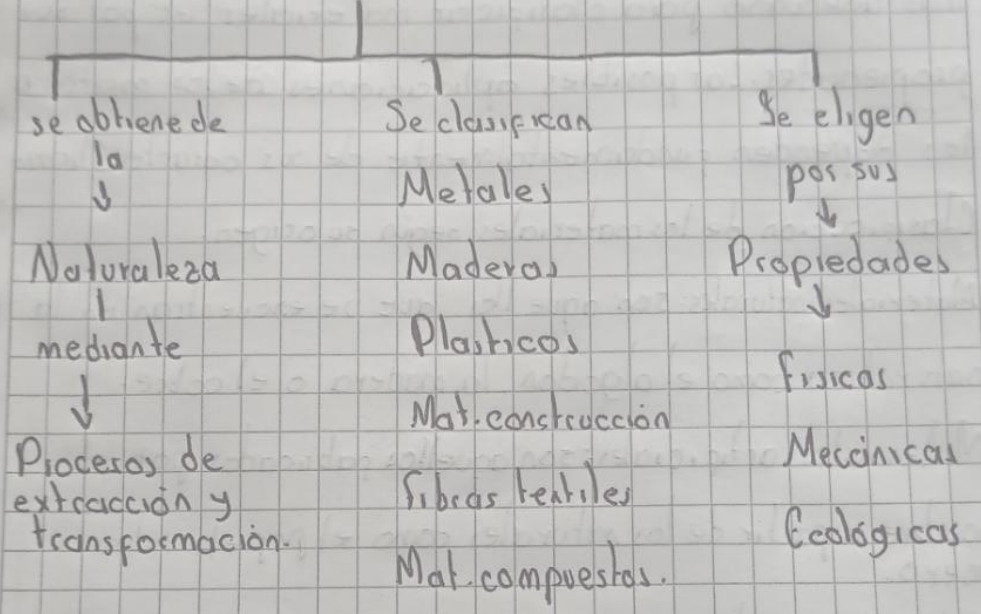 se obtiene de
la
Naturaleza
mediante
Procesos de
extracción y
transformación.
Se clasifican
Metales
Maderas
Plasticos
Mat. construcción
fibras textiles
Mat. compuestos.
Se eligen
por sus
Propiedades
físicas
Mecánicas
Ecológicas